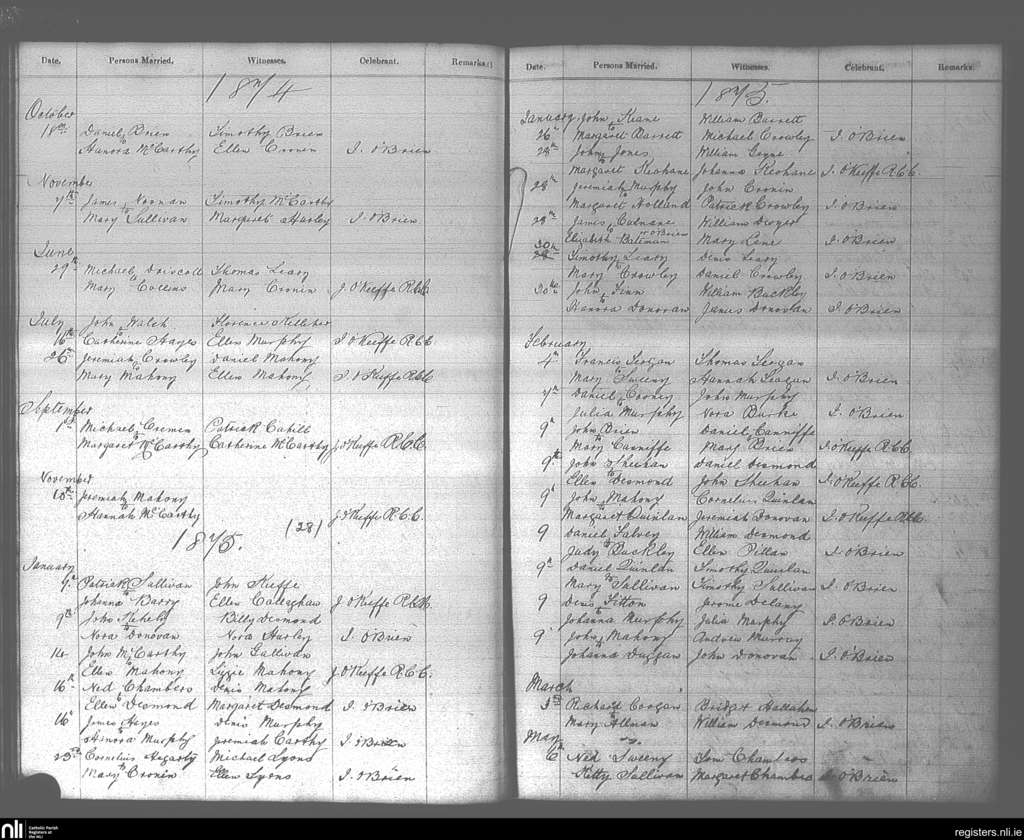 Date. Persons Married. Witnesses. Celebrant. Remarks.
1874
October
18th Daniel Brien Timothy Brien
to
Hanora McCarthy Ellen Cronin J. O'Brien
November
7th James Noonan Timothy McCarthy
to
Mary Sullivan Margaret Hurley J. O'Brien
June
29th Michael Driscoll Thomas Leary
to
Mary Collins Mary Cronin J. O'Keeffe R.C.C.
July John Walsh Florence Kelleher
to
16th Catherine Hayes Ellen Murphy J. O'Keeffe R.C.C.
26th Jeremiah Crowley Daniel Mahony
to
Mary Mahony Ellen Mahony J. O'Keeffe R.C.C.
September
1st Michael Cremen Patrick Cahill
to
Margaret McCarthy Catherine McCarthy J. O'Keeffe R.C.C.
November
Jeremiah Mahony
to
Hannah McCarthy J. O'Keeffe R.C.C.
1875. (28)
January
Patrick Sullivan John Keeffe
to
Johanna Barry Ellen Callaghan J. O'Keeffe R.C.C.
9th John Billy Desmond
to
Nora Donovan Nora Hurley J. O'Brien
14 John McCarthy John Sullivan
to
Ellen Mahony Lizzie Mahony J. O'Keeffe R.C.C.
16th Ned Chambers Denis Mahony
to
Ellen Desmond Margaret Desmond J. O'Brien
16 James Hayes Denis Murphy
to
Hanora Murphy Jeremiah Carthy J. O'Brien
Cornelius Hegarty Michael Lyons
to
Mary Cronin Ellen Lyons J. O'Brien
Date. Persons Married. Witnesses. Celebrant. Remarks.
1875.
January John Keane William Barrett
to
26th Margaret Barrett Michael Crowley J. O'Brien
28th John Jones William
to
Margaret Keohane Johanna Keohane J. O'Keeffe R.C.C.
28th Jeremiah Murphy John Cronin
to
Margaret Holland Patrick Crowley J. O'Brien
28th James Culnane William Dwyer
to
Elizabeth Bateman or O'Brien Mary Lane J. O'Brien
30th Timothy Leary Denis Leary
to
Mary Crowley Daniel Crowley J. O'Brien
30th John Finn William Buckley
to
Hanora Donovan James Donovan J. O'Brien
February
4th Francis Thomas
to
Mary Sweeny Hannah J. O'Brien
7th Daniel John Murphy
to
Julia Murphy Nora Burke J. O'Brien
9 John Brien Daniel Canniffe
to
Mary Canniffe Mary Brien J. O'Keeffe R.C.C.
9th John Sheehan Daniel Desmond
to
Ellen Desmond John Sheehan J. O'Keeffe R.C.C.
9 John Mahony Cornelius Quinlan
to
Margaret Quinlan Jeremiah Donovan J. O'Keeffe R.C.C.
9 Daniel Falvey William Desmond
to
Judy Buckley Ellen J. O'Brien
9th Daniel Quinlan Timothy Quinlan
to
Mary Sullivan Timothy Sullivan J. O'Brien
9 Denis Fitton Jerome Delany
to
Johanna Murphy Julia Murphy J. O'Brien
9 John Mahony Andrew Murray
to
Johanna Duggan John Donovan J. O'Brien
March
Richard Coogan Bridget Hallahan
to
Mary Ahman William Desmond J. O'Brien
May
6th Ned Sweeny Tom Chambers
to
Kitty Sullivan Margaret Chambers J. O'Brien
nli Catholic Parish
Registers at
the NLI
registers.nli.ie